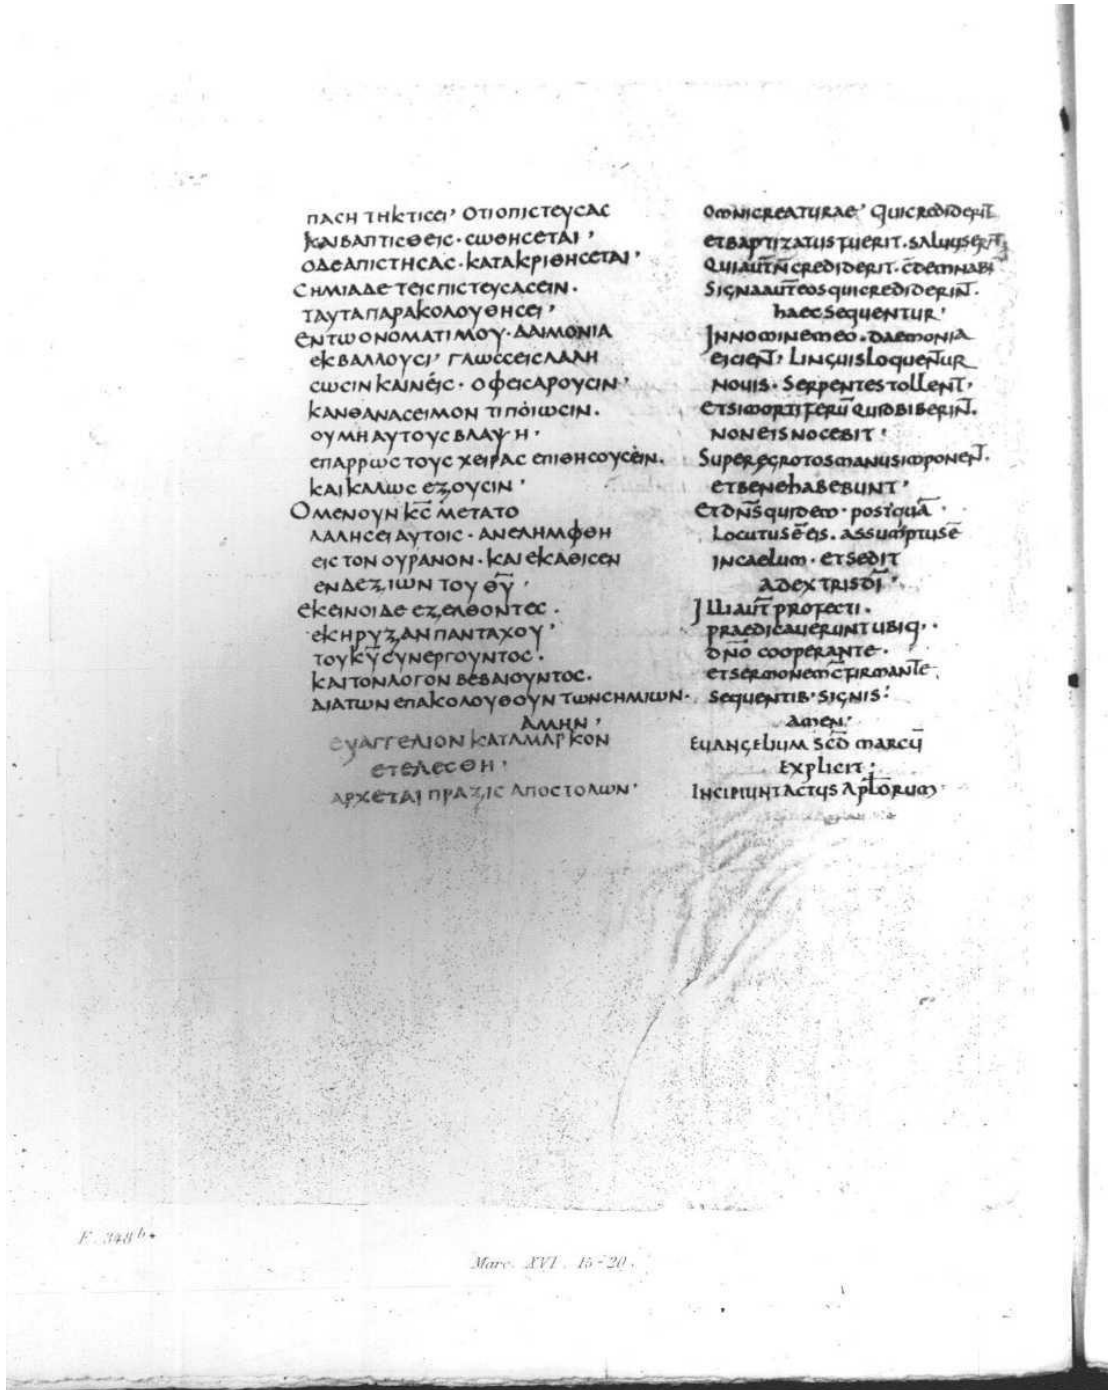 ΠΑCΗ ΤΗ ΚΤΙCΕΙ’ ΟΤΙ Ο ΠΙCΤΕΥCΑC
ΚΑΙ ΒΑΠΤΙCΘΕΙC· CΩΘΗCΕΤΑΙ’
Ο ΔΕ ΑΠΙCΤΗCΑC· ΚΑΤΑΚΡΙΘΗCΕΤΑΙ’
CΗΜΙΑ ΔΕ ΤΕΙC ΠΙCΤΕΥCΑCΕΙΝ·
ΤΑΥΤΑ ΠΑΡΑΚΟΛΟΥΘΗCΕΙ’
ΕΝ ΤΩ ΟΝΟΜΑΤΙ ΜΟΥ· ΔΑΙΜΟΝΙΑ
ΕΚΒΑΛΛΟΥCΙ’ ΓΛΩCCΕΙC ΛΑΛΗ
CΩCΙΝ ΚΑΙΝΕΙC· ΟΦΕΙC ΑΡΟΥCΙΝ’
ΚΑΝ ΘΑΝΑCΕΙΜΟΝ ΤΙ ΠΟΙΩCΙΝ·
ΟΥ ΜΗ ΑΥΤΟΥC ΒΛΑΨΗ·
ΕΠ ΑΡΡΩCΤΟΥC ΧΕΙΡΑC ΕΠΙΘΗCΟΥCΕΙΝ·
ΚΑΙ ΚΑΛΩC ΕΞΟΥCΙΝ’
Ο ΜΕΝ ΟΥΝ Κ̅C̅ ΜΕΤΑ ΤΟ
ΛΑΛΗCΕΙ ΑΥΤΟΙC· ΑΝΕΛΗΜΦΘΗ
ΕΙC ΤΟΝ ΟΥΡΑΝΟΝ· ΚΑΙ ΕΚΑΘΙCΕΝ
ΕΝ ΔΕΞΙΩΝ ΤΟΥ Θ̅Υ̅’
ΕΚΕΙΝΟΙ ΔΕ ΕΞΕΛΘΟΝΤΕC·
ΕΚΗΡΥΞΑΝ ΠΑΝΤΑΧΟΥ’
ΤΟΥ Κ̅Υ̅ CΥΝΕΡΓΟΥΝΤΟC·
ΚΑΙ ΤΟΝ ΛΟΓΟΝ ΒΕΒΑΙΟΥΝΤΟC·
ΔΙΑ ΤΩΝ ΕΠΑΚΟΛΟΥΘΟΥΝΤΩΝ CΗΜΙΩΝ·
ΑΜΗΝ’
ΕΥΑΓΓΕΛΙΟΝ ΚΑΤΑ ΜΑΡΚΟΝ
ΕΤΕΛΕCΘΗ·
ΑΡΧΕΤΑΙ ΠΡΑΞΙC ΑΠΟCΤΟΛΩΝ·
omni creaturae’ qui crediderit̅
et baptizatus fuerit· saluus erit̅
qui aut̅ n̅ crediderit· c̅demnabi̅
Signa aut̅ eos qui crediderin̅t·
haec sequentur’
In nomine meo· daemonia
eicien̅t’ linguis loquen̅tur
nouis· serpentes tollen̅t’
et si mortiferu̅ quid biberin̅t·
non eis nocebit’
Super egrotos manus imponen̅t·
et bene habebunt’
Et dn̅s quidem· postqua̅
locutus e̅ eis· assumptus e̅
in caelum· et sedit
ad extris di̅’
Illi aut̅ profecti·
praedicauerunt ubiq·
dn̅o cooperante·
et sermonem c̅firman̅te
sequentib· signis:
amen’
euangelium sc̅d marcu̅
explicit·
incipiunt actus apl̅orum·
F. 348 b.
Marc. XVI. 15-20.